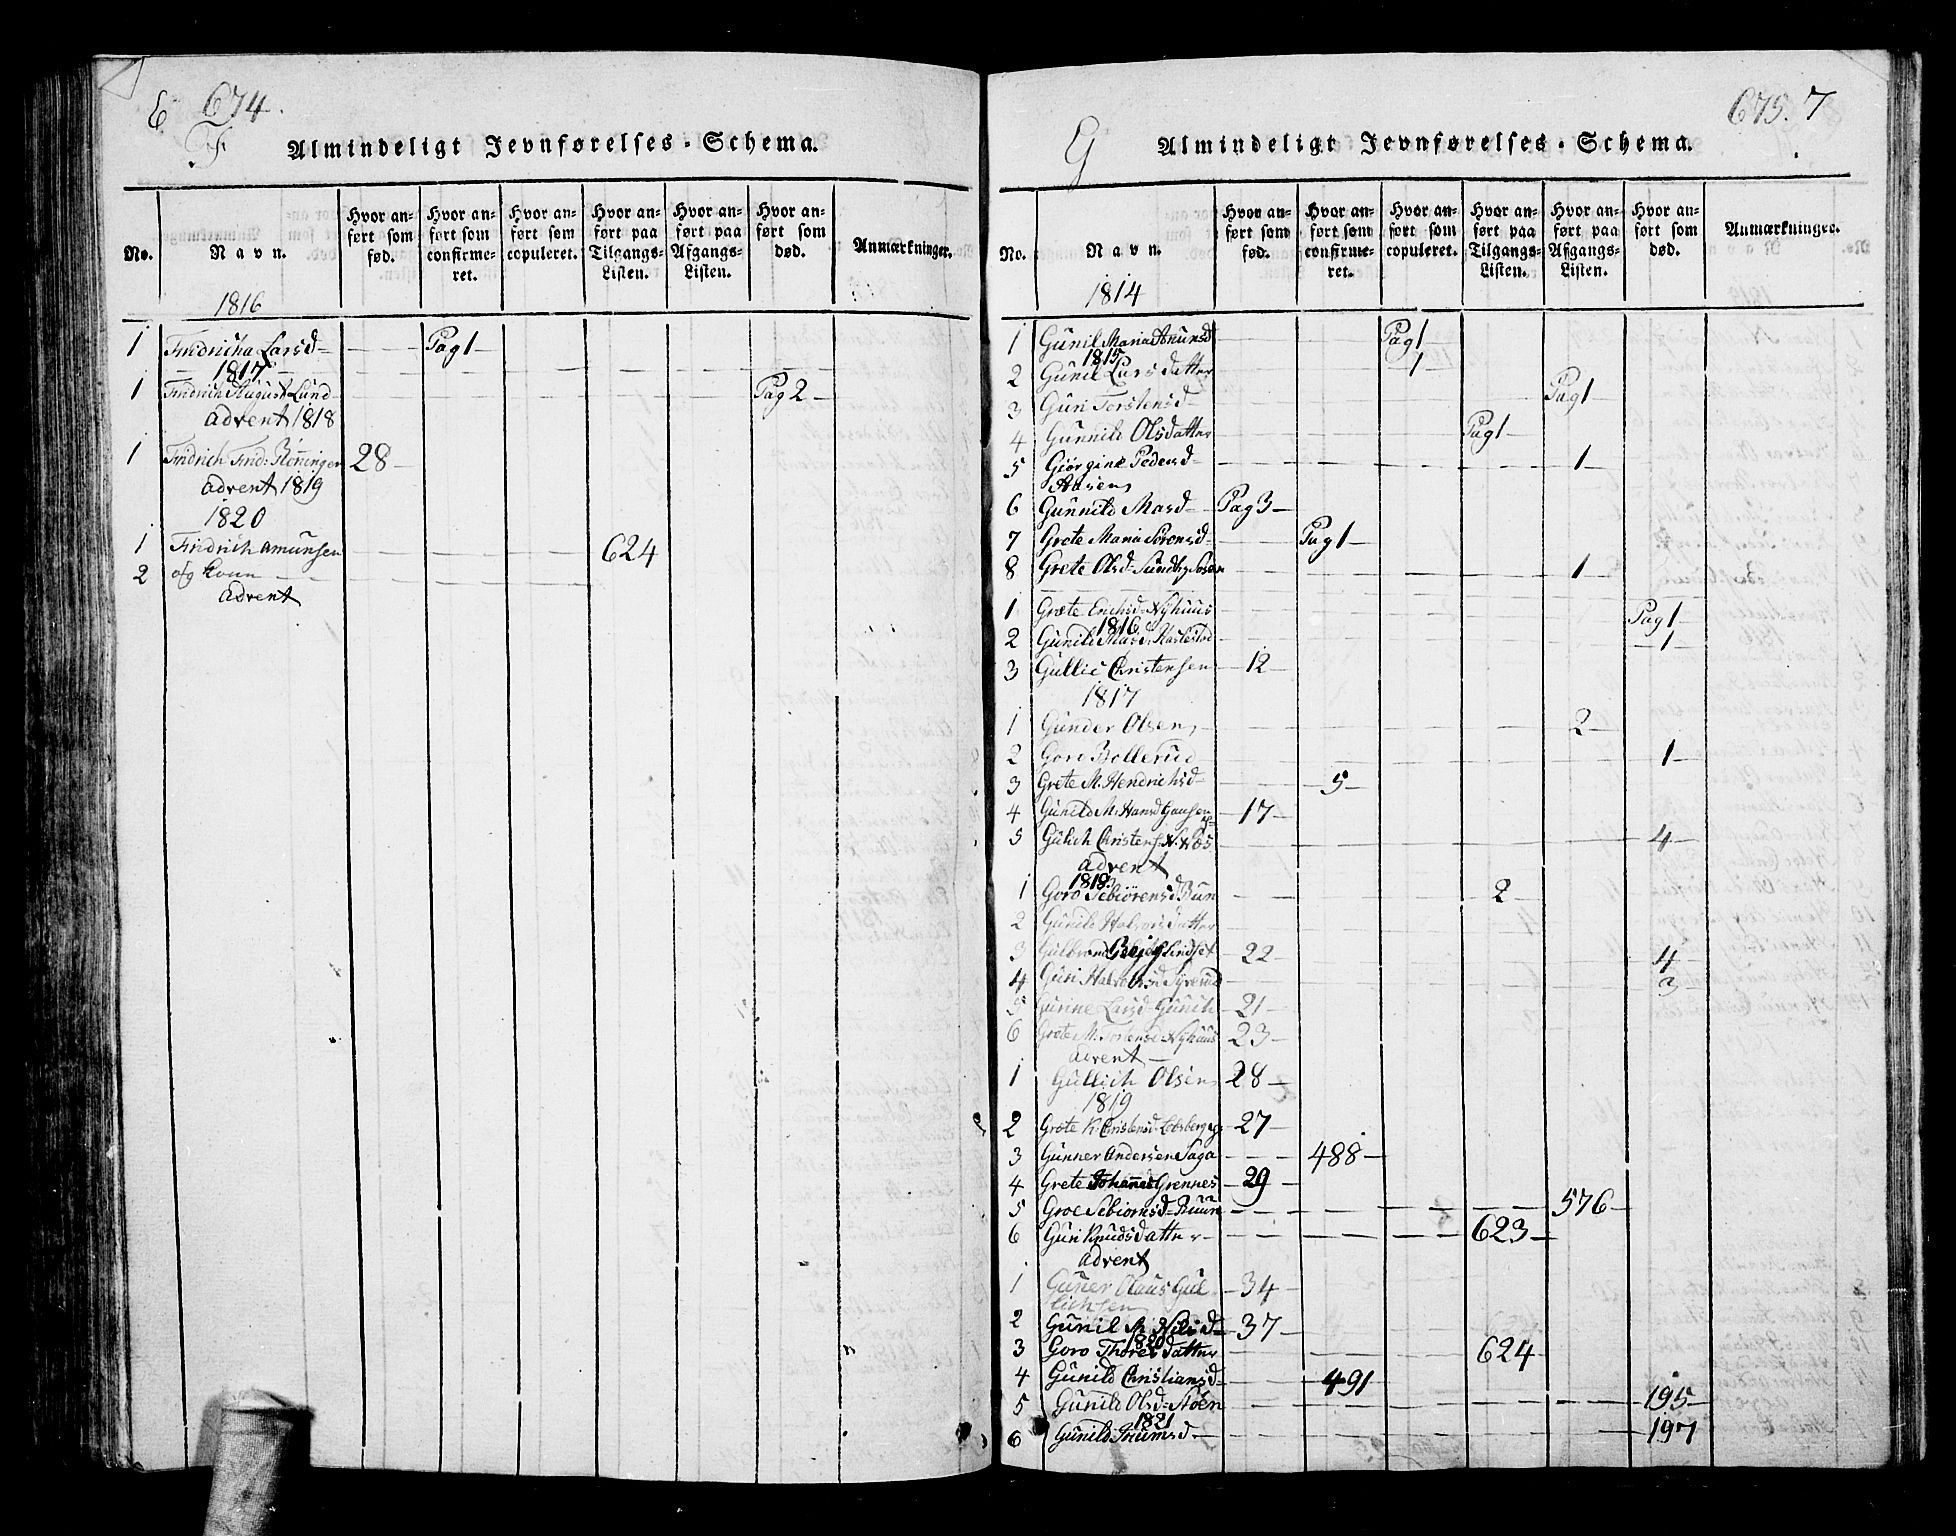 E 674.
F
Almindeligt Jevnførelses-Schema.
No.
Navn.
Hvor an-ført som fød.
Hvor an-ført som confirme-ret.
Hvor an-ført som copuleret.
Hvor an-ført paa Tilgangs-Listen.
Hvor an-ført paa Afgangs-Listen.
Hvor an-ført som død.
Anmærkninger.
1816
1 Fridricha Larsd Pag 1
1817
1 Fridrich August Lund Pag 2
advent 1818
1 Fridrich Frid: 28
advent 1819
1820
1 Fridrich amunsen 624
2 og
advent
675. 7
G
Almindeligt Jevnførelses-Schema.
No.
Navn.
Hvor an-ført som fød.
Hvor an-ført som confirme-ret.
Hvor an-ført som copuleret.
Hvor an-ført paa Tilgangs-Listen.
Hvor an-ført paa Afgangs-Listen.
Hvor an-ført som død.
Anmærkninger.
1814
1 Gunil Maria Amunsd Pag 1
1815
2 Gunil Larsdatter 1
3 Guri Torstensd Pag 1
4 Gunnild Olsdatter Pag 1
5 Giørgine Pedersd 1
Aasen
6 Gunnild Masd Pag 3
7 Grete Maria Sørensd Pag 1
8 Grete Olsd Sundby 1
1 Grete Erichsd Nyhuus Pag 1
1816
2 Gunild Masd 1
3 Gullic Christensen 12
1817
1 Gunder Olsen 2
2 Goro Bollerud 1
3 Grete M. Hendrichsd 5
4 Gunild M. Hansd 17
5 Gulich Christens. 4
advent
1818
1 Goro Sebiørensd Ruu 2
2 Gunild Halvorsdatter
3 Gulbrand 22 4
4 Guri 3
5 Gurine Larsd 21
6 Grete M. Nyhuus 23
advent
1 Gullich Olsen 28
1819
2 Grete K. Christensd 27
3 Gunner Andersen Saga 488
4 Grete Johannesd Grennes 29
5 Groe Sebiornsd Ruun 576
6 Guri Knudsdatter 623
advent
1 Guner Olaus Gul
lichsen 34
2 Gunil M. Nilsd 37
1820
3 Goro Thoresdatter 624
4 Gunild Christiansd 491
5 Gunild Olsd Støen 195
1821
6 Gunild 197